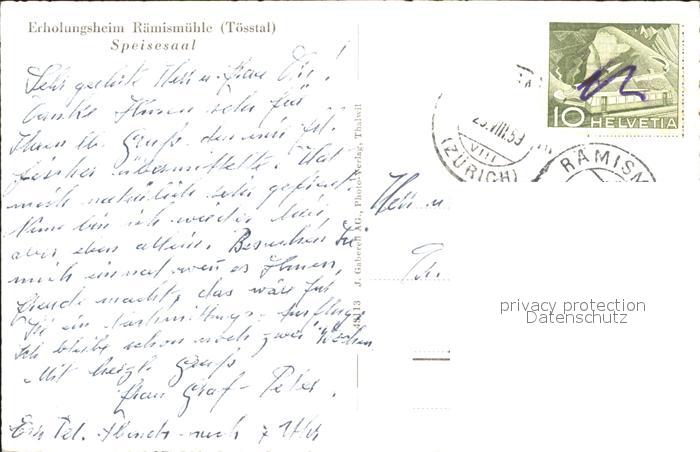 Erholungsheim Rämismühle (Tösstal)
Speisesaal
Sehr geehrte Herr u. Frau
Danke Ihnen sehr für
Ihren lb. Gruss den mir Frl.
übermittelte. Hat
mich natürlich sehr gefreut.
Nun bin ich wieder hier,
aber eben allein. Besuchen Sie
mich einmal wenn es Ihnen
Freude macht, das wäre für
Sie ein Nachmittags-Ausflug.
Ich bleibe schon noch zwei Wochen
Mit herzl. Gruss
Frau Graf-Peter.
Tel. Abends nach 7 Uhr
48113 J. Gaberell AG., Photo-Verlag, Thalwil
10 HELVETIA
VIII
(ZÜRICH)
RÄMISM
Herr u.
privacy protection
Datenschutz